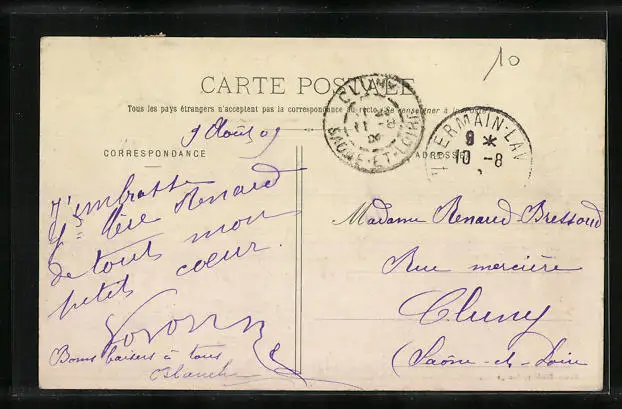 10
CARTE POSTALE
Tous les pays étrangers n'acceptent pas la correspondance au recto. (Se renseigner à la Poste)
9 Août 09
CORRESPONDANCE
ADRESSE
CLUNY
SAONE-ET-LOIRE
GERMAIN-LAV
9 *
10 -8
J'embrasse
Père Renard
de tout mon
petit coeur.
Bons baisers à tous
Blanche
Madame Renaud Bressoud
Rue mercière
Cluny
(Saône-et-Loire